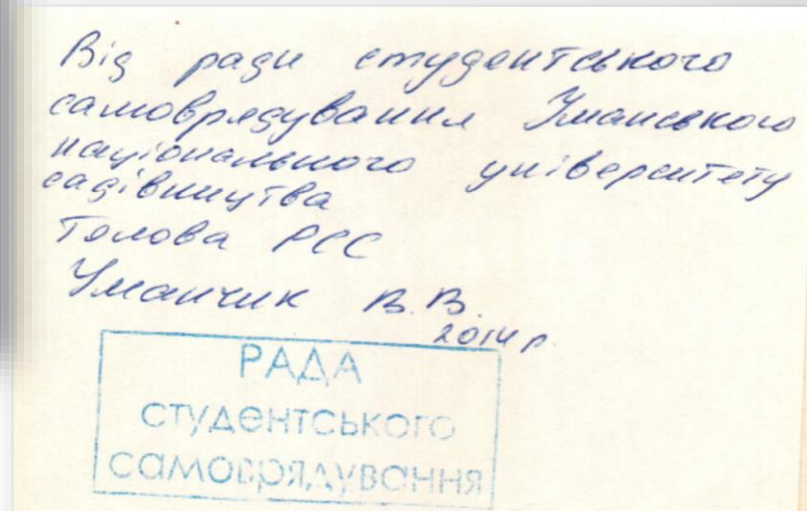 Від ради студентського
самоврядування Уманського
національного університету
садівництва
Голова РСС
Уманчик В.В.
2014 р
РАДА
студентського
самоврядування